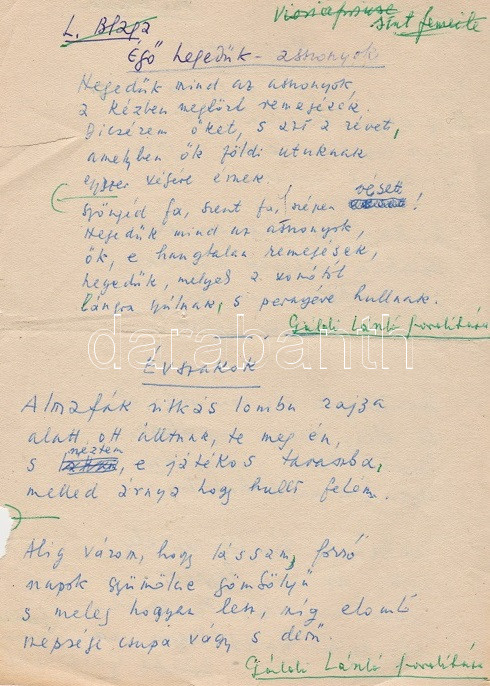 L. Blaga
sînt femeile
Égő hegedűk - asszonyok
Hegedűk mind az asszonyok,
a kézben megtört remegések.
Dicsérem őket, s azt a révet,
amelyben ők földi utuknak
végére érnek.
fa, szent fa, szépen vésett!
Hegedűk mind az asszonyok,
ők, e hangtalan remegések,
hegedűk, melyek a vonótól
lángra gyúlnak, s pernyére hullnak.
Gáldi László fordítása
darabanth
Évszakok
Almafák ritkás lombu zajza
alatt ott álltunk, te meg én,
s néztem, e játékos tavaszba,
melled árnya hogy hullt felém.
Alig várom, hogy lássam, forró
napok gyümölcse gömbölyű
s meleg hogyan lesz, míg elomló
szépsége csupa vágy s derű.
Gáldi László fordítása